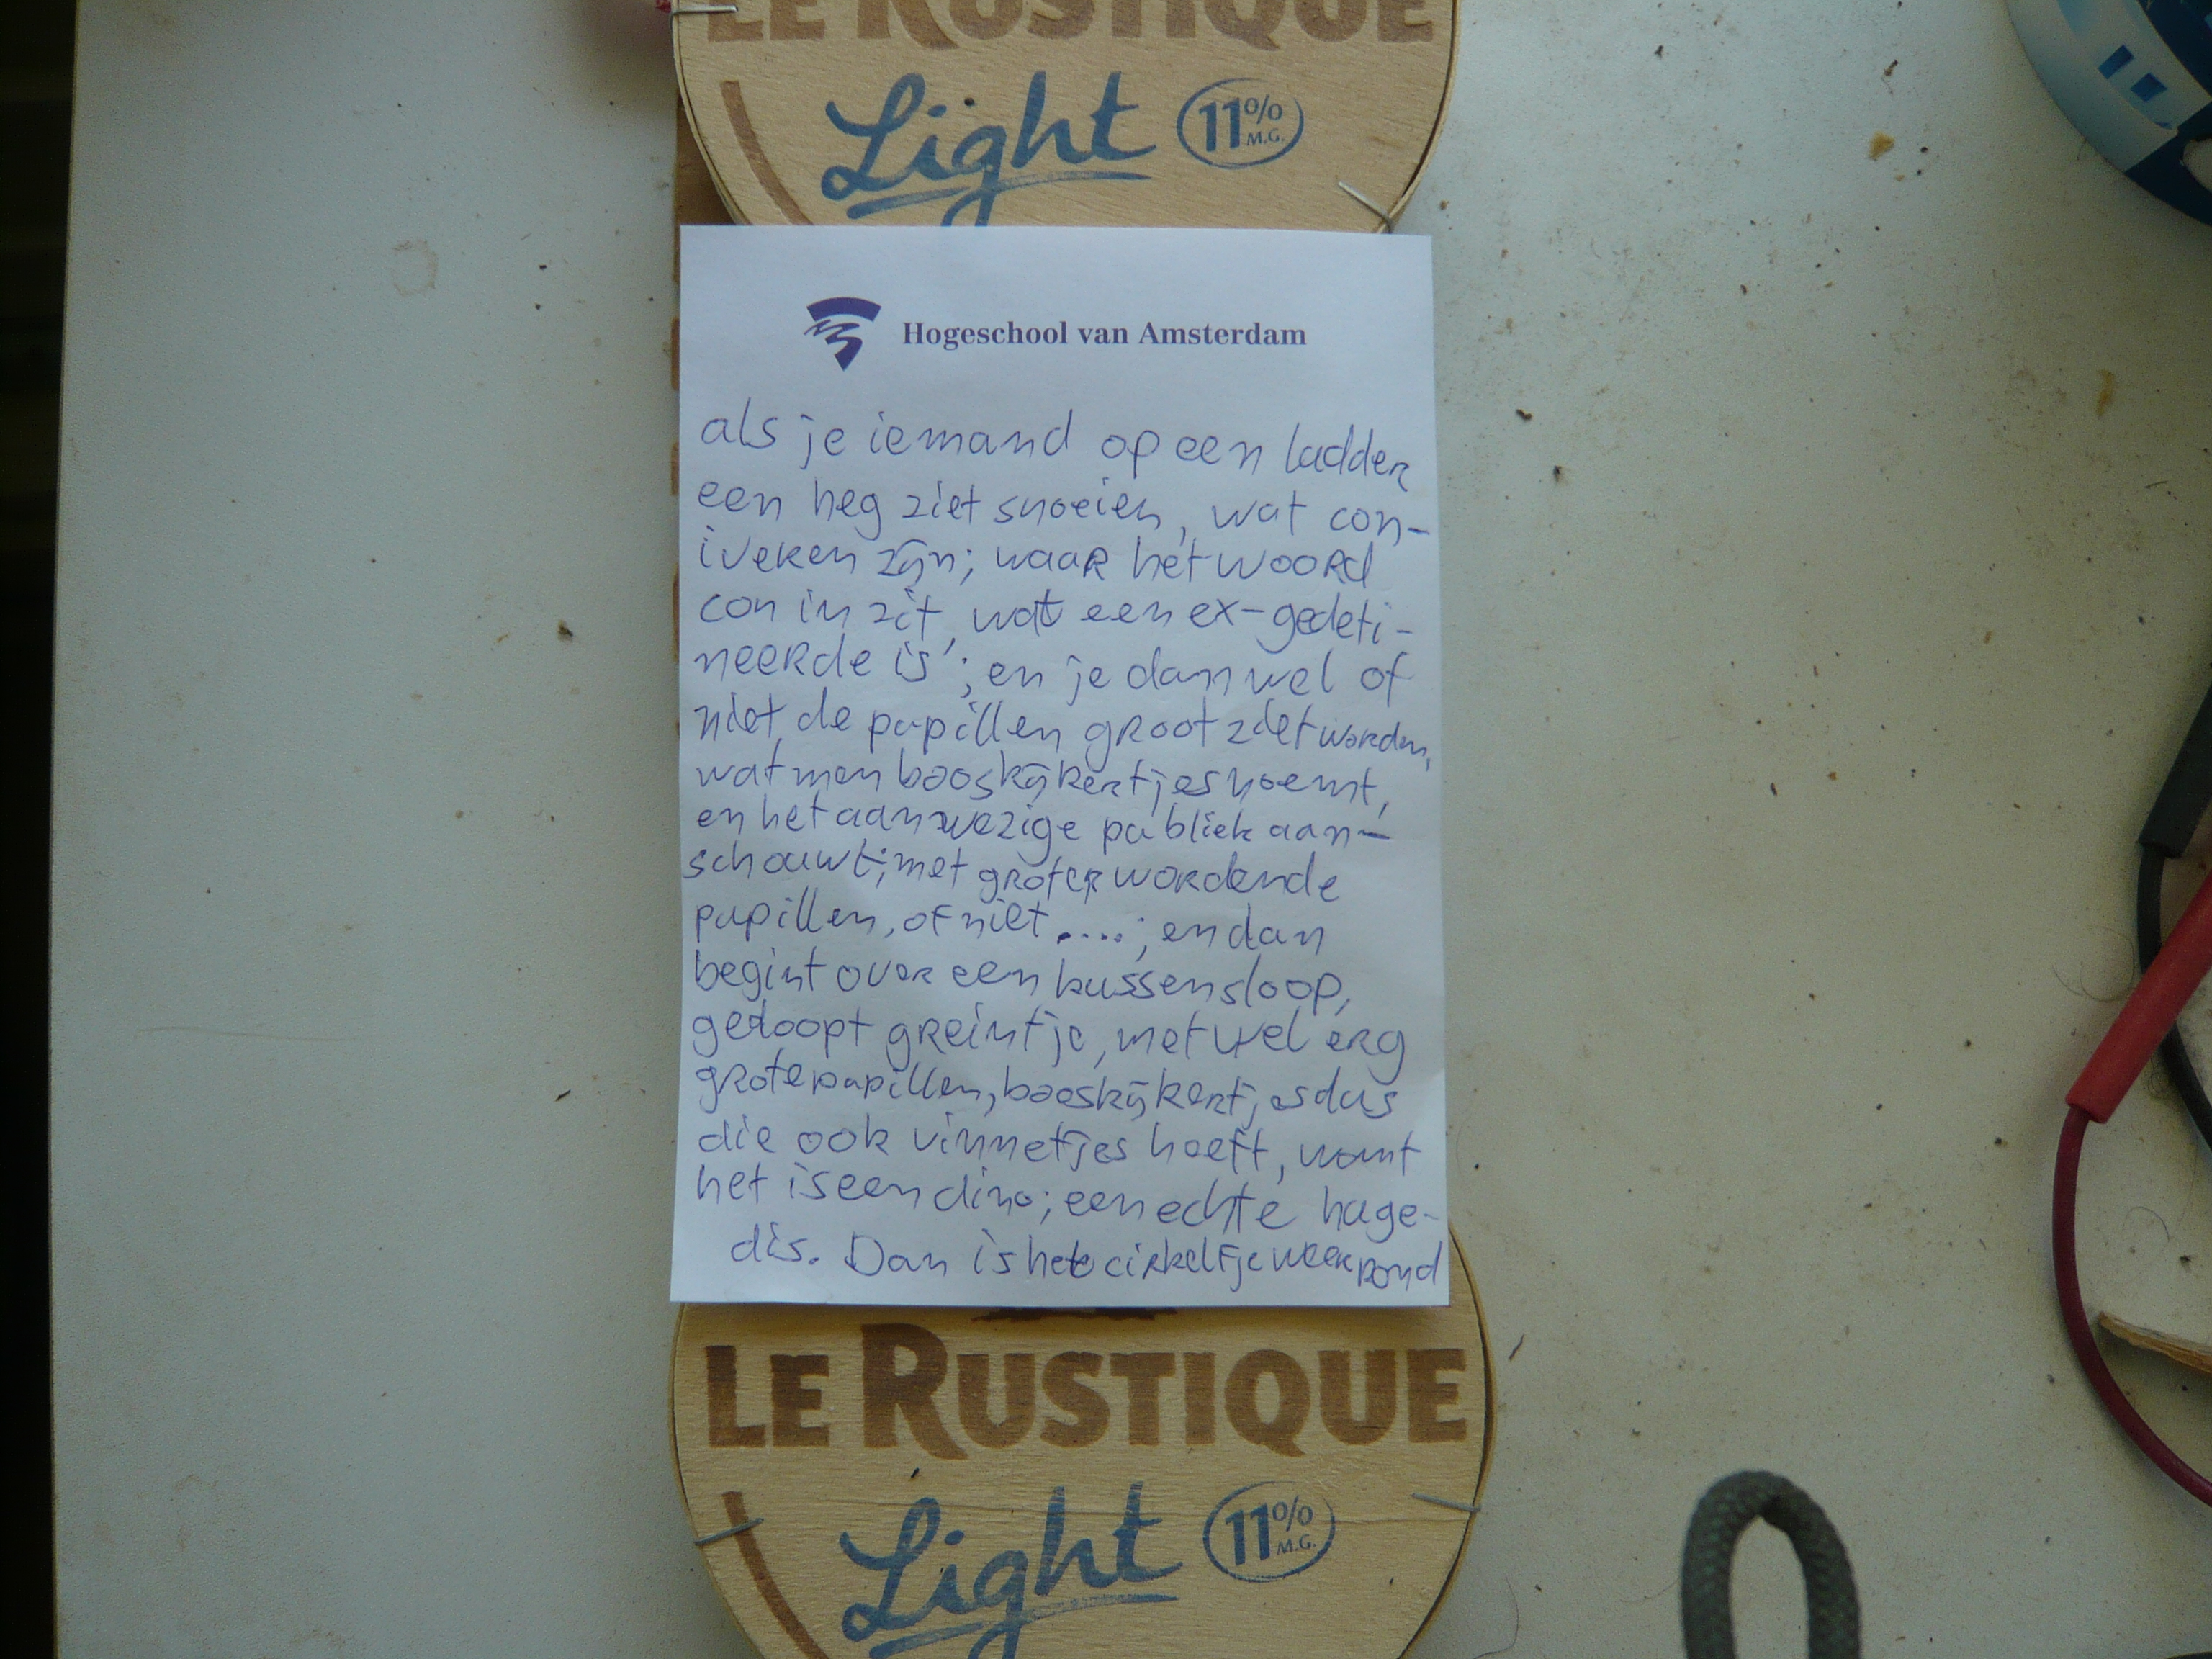 LE RUSTIQUE
Light 11% M.G.
Hogeschool van Amsterdam
als je iemand op een ladder
een heg ziet snoeien, wat con-
iveren zijn; waar het woord
con in zit, wat een ex-gedeti-
neerde is'; en je dan wel of
niet de pupillen groot ziet worden,
wat men booskijkertjes noemt,
en het aanwezige publiek aan-
schouwt; met groter wordende
pupillen, of niet ....; en dan
begint over een kussensloop,
gedoopt greintje, met wel erg
grote pupillen, booskijkertjes dus
die ook vinnetjes heeft, want
het is een dino; een echte hage-
dis. Dan is het cirkeltje weer rond
LE RUSTIQUE
Light 11% M.G.